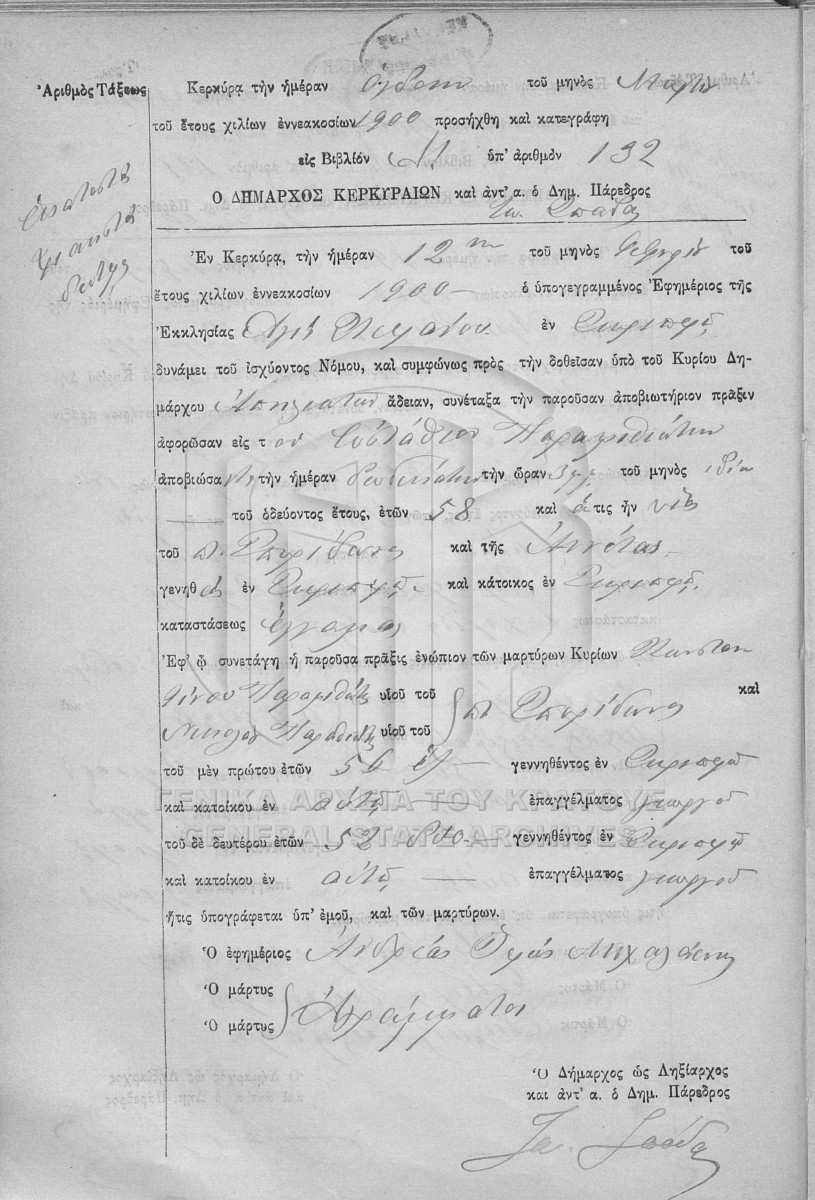 Ἀριθμὸς Τάξεως
Ἑκατοστὴ
τριακοστὴ
Κερκύρᾳ τὴν ἡμέραν ὀγδόην τοῦ μηνὸς Μαρτίου
τοῦ ἔτους χιλίων ἐννεακοσίων 1900 προσήχθη καὶ κατεγράφη
εἰς Βιβλίον ὑπ' ἀριθμὸν 132
Ὁ ΔΗΜΑΡΧΟΣ ΚΕΡΚΥΡΑΙΩΝ καὶ ἀντ' α. ὁ Δημ. Πάρεδρος
Σπάδας
Ἐν Κερκύρᾳ, τὴν ἡμέραν 12ην τοῦ μηνὸς τοῦ
ἔτους χιλίων ἐννεακοσίων 1900 — ὁ ὑπογεγραμμένος Ἐφημέριος τῆς
Ἐκκλησίας Ἁγίου ἐν Σκριπερῷ
δυνάμει τοῦ ἰσχύοντος Νόμου, καὶ συμφώνως πρὸς τὴν δοθεῖσαν ὑπὸ τοῦ Κυρίου Δη-
μάρχου ἄδειαν, συνέταξα τὴν παροῦσαν ἀποβιωτήριον πρᾶξιν
ἀφορῶσαν εἰς τὸν Εὐστάθιον Παραμυθιώτην
ἀποβιώσαντα τὴν ἡμέραν δωδεκάτην τὴν ὥραν 3 μ.μ. τοῦ μηνὸς ἰδίου
— τοῦ ὁδεύοντος ἔτους, ἐτῶν 58 καὶ ὅστις ἦν υἱὸς
τοῦ π. Σπυρίδωνος καὶ τῆς
γενηθεὶς ἐν Σκριπερῷ καὶ κάτοικος ἐν Σκριπερῷ
καταστάσεως ἔγγαμος
Ἐφ' ᾧ συνετάγη ἡ παροῦσα πρᾶξις ἐνώπιον τῶν μαρτύρων Κυρίων Κωνσταν
τίνου Παραμυθιώτη υἱοῦ τοῦ π. Σπυρίδωνος καὶ
Νικολάου Παραμυθιώτη υἱοῦ τοῦ
τοῦ μὲν πρώτου ἐτῶν 56 — γεννηθέντος ἐν Σκριπερῷ
καὶ κατοίκου ἐν αὐτῷ — ἐπαγγέλματος γεωργοῦ
τοῦ δὲ δευτέρου ἐτῶν 52 — γεννηθέντος ἐν Σκριπερῷ
καὶ κατοίκου ἐν αὐτῷ — ἐπαγγέλματος γεωργοῦ
ἥτις ὑπογράφεται ὑπ' ἐμοῦ, καὶ τῶν μαρτύρων.
Ὁ ἐφημέριος Ἀνδρέας Ἱερεὺς
Ὁ μάρτυς
Ὁ μάρτυς Ἀγράμματοι
Ὁ Δήμαρχος ὡς Ληξίαρχος
καὶ ἀντ' α. ὁ Δημ. Πάρεδρος
Σπάδας
ΓΕΝΙΚΑ ΑΡΧΕΙΑ ΤΟΥ ΚΡΑΤΟΥΣ
GENERAL STATE ARCHIVES